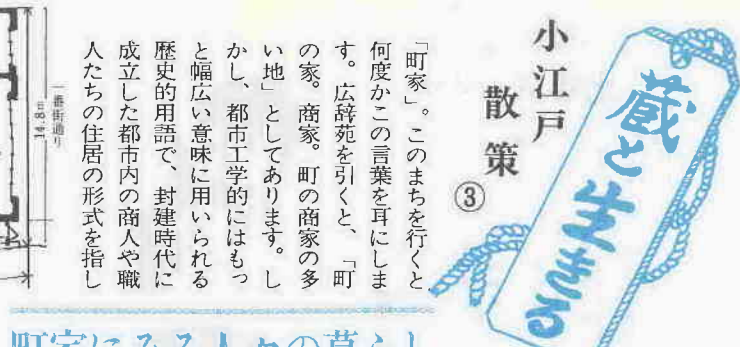 蔵と生きる
小江戸
散策
③
「町家」。このまちを行くと
何度かこの言葉を耳にしま
す。広辞苑を引くと、「町
の家。商家。町の商家の多
い地」としてあります。し
かし、都市工学的にはもっ
と幅広い意味に用いられる
歴史的用語で、封建時代に
成立した都市内の商人や職
人たちの住居の形式を指し
一番街通り
14.8m
町家にみる人々の暮らし